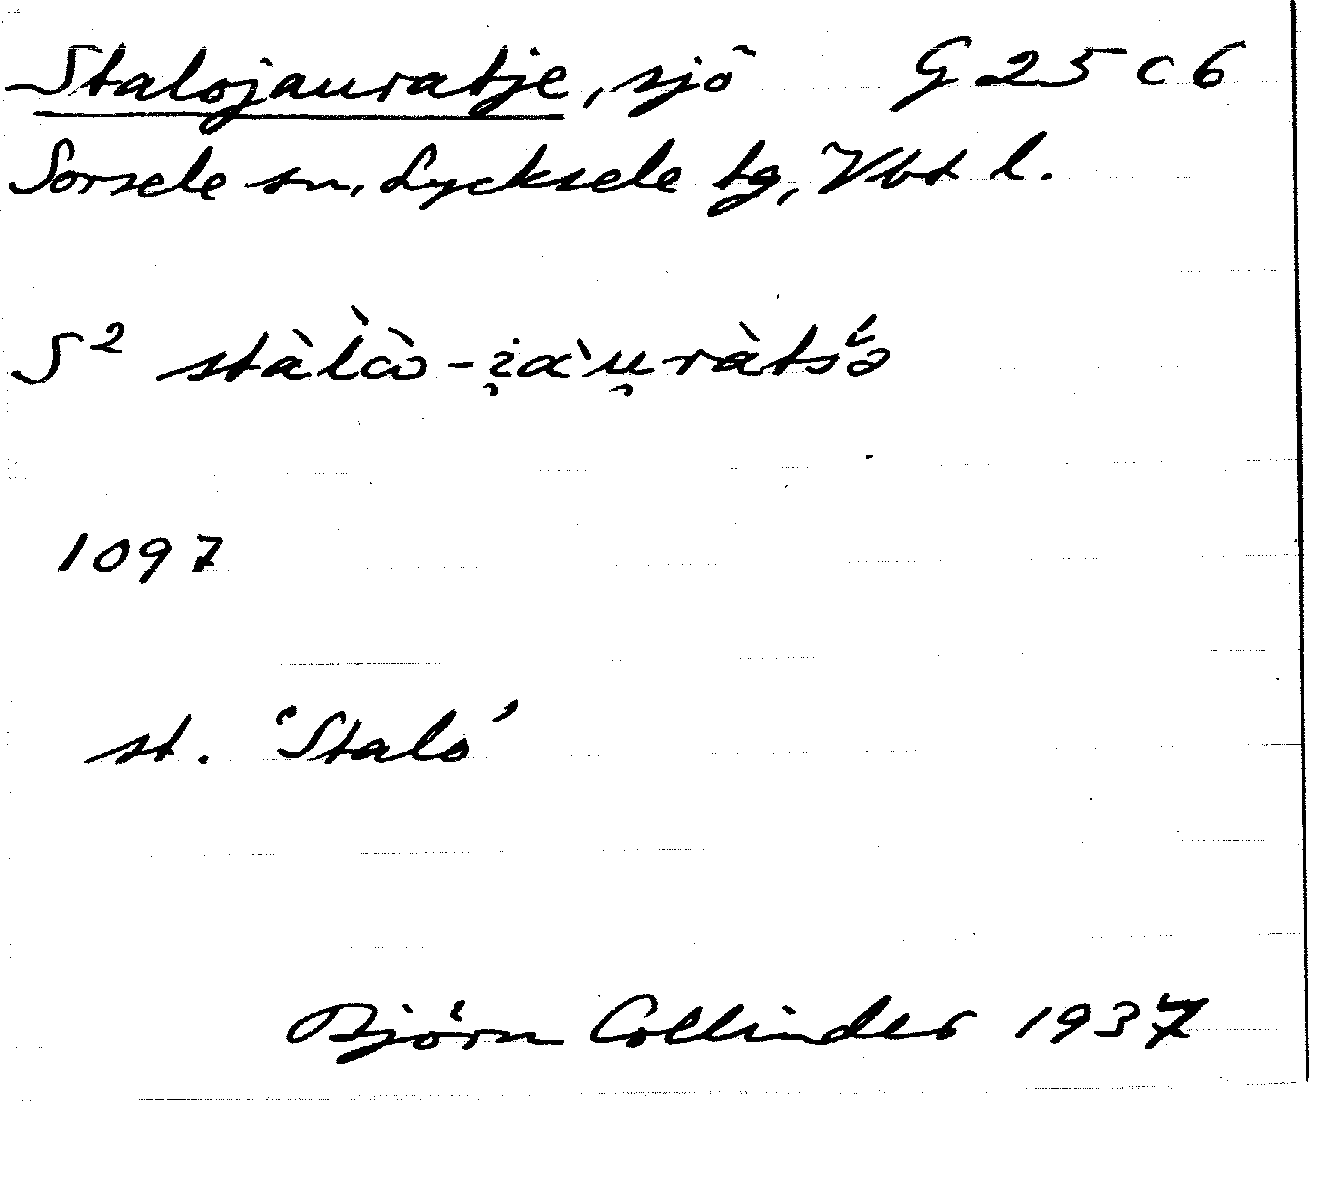 Stalojauratje, sjö G 25 c 6
Sorsele sn, Lycksele tg, Vbt l.
S² stàl̀ɑ̀ɔ - i̯ɑ̀u̯ràtśə
1097
st. 'Stalo'
Björn Collinder 1937